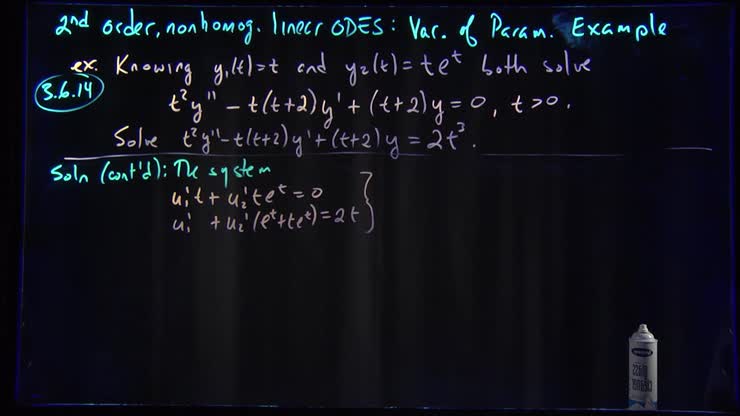 2nd order, nonhomog. linear ODES: Var. of Param. Example
ex. Knowing y₁(t)=t and y₂(t)=te^t both solve
3.6.14
t²y'' - t(t+2)y' + (t+2)y = 0, t>0.
Solve t²y'' - t(t+2)y' + (t+2)y = 2t³.
Soln (cont'd): The system
u₁'t + u₂'te^t = 0
u₁' + u₂'(e^t+te^t) = 2t